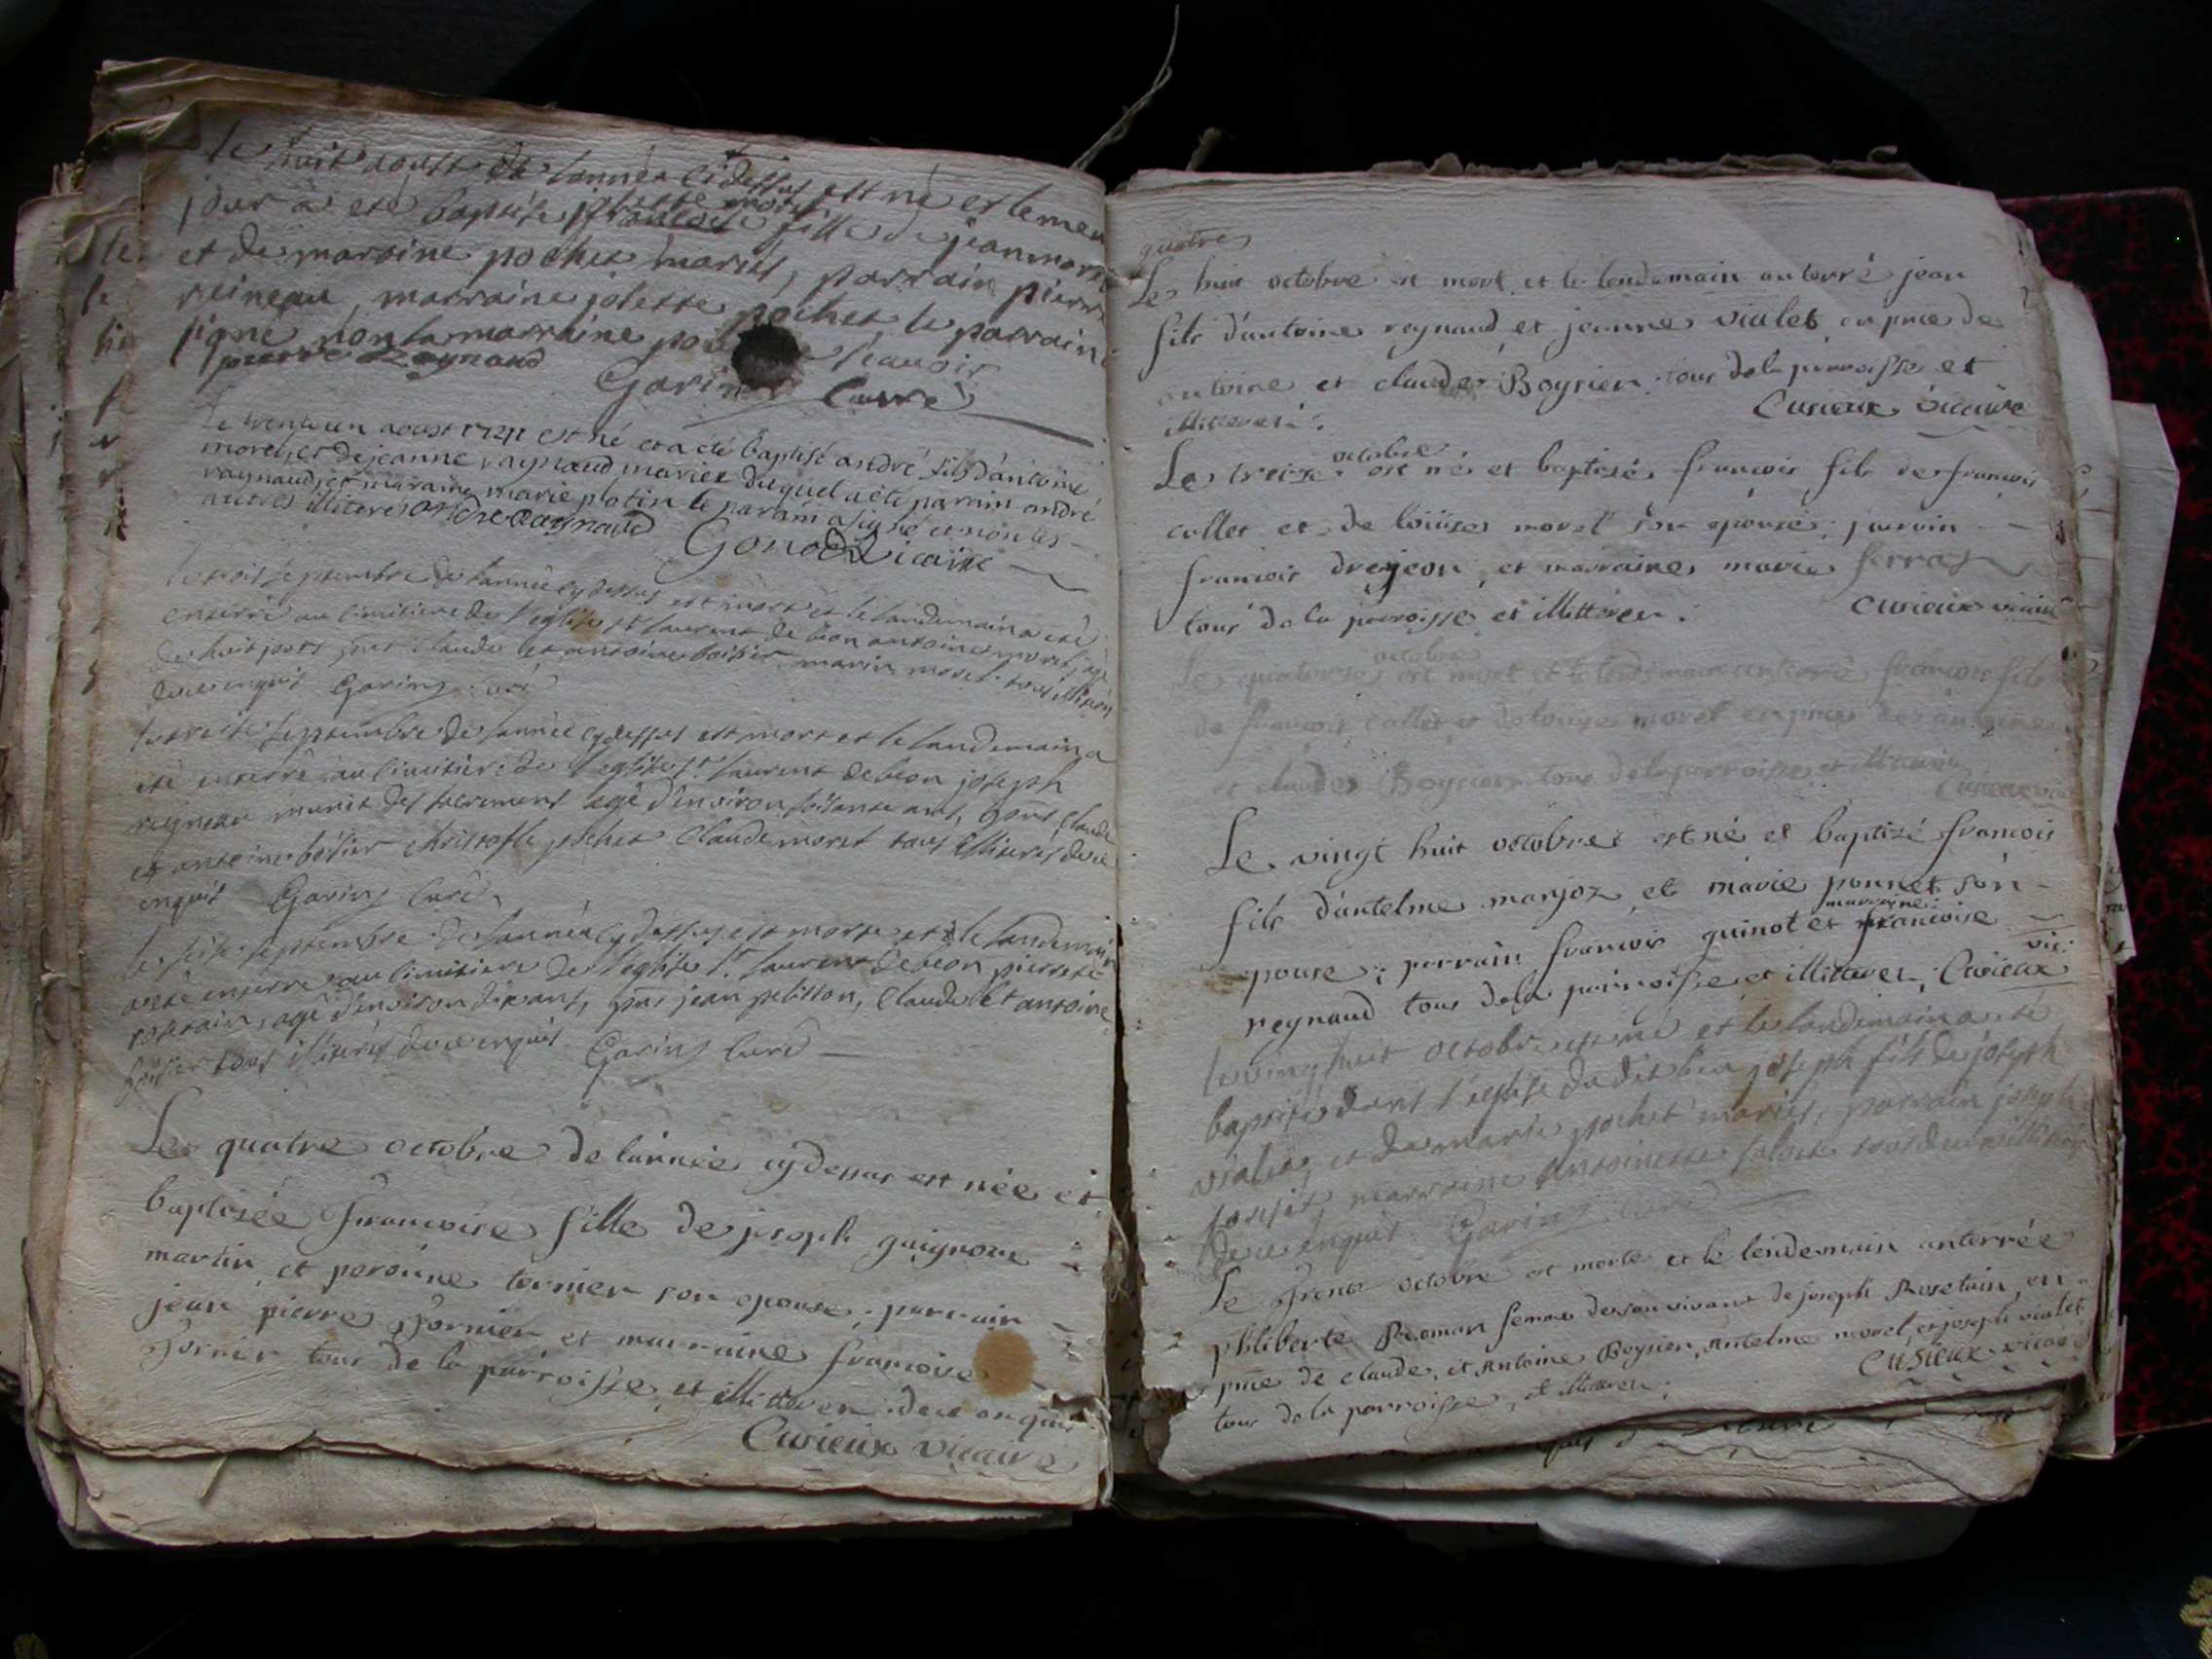 le huit aoust de lannée cidessus est né et le meme
jour a eté baptisée josette morel fille de jean morel
et de maraine pochet mariés, parrain pierre
reineau, marraine josette pochet le parrain
signé non la marraine pour scavoir
pierre Raynaud Garin Curé
Le trente un aoust est né et a été baptisé andré fils d'antoine
morel, et de jeanne raynaud mariez duquel a été parrain andré
raynaud, et maraine marie potin le parain a signé et non les
autres illiteres andre Raynaud Gonod Vicaire
le troit septembre de lannée cy dessus est mort et le landemain a eté
enterré au cimitiere de l'eglise st laurent de beon antoine morel, agé
de huit claude et antoine boisier marin morel tous illiterés
de ce enquis Garin curé
le treise septembre de lannée cy dessus est mort et le landemain a
eté enterré au cimitiere de l'eglise st laurent de beon joseph
reyneau munit des sacrement agé d'environ soisante ans, pnt claude
et antoine boisier christofle pochet claude morel tous illiterés de ce
enquis Garin Curé
le seise septembre de lannée cy dessus est morte et le landemain
a eté enterré au cimitiere de l'eglise st laurent de beon pierrete
rosetain, agé d'environ ans, pnt jean pelisson, claude et antoine
boisier tous illiterés de ce enquis Garin Curé
Le quatre octobre de lannée cy dessus est née et
baptisée francoise fille de joseph guignone
martin et peroinne tornier son epouse; parrain
jean pierre tornier et marraine francoise
tornier tous de la parroisse et illitteres de ce enquis
Curieux vicaire
quatre
Le huit octobre est mort et le lendemain anterré jean
fils d'antoine reynaud et jeanne vialet en pnce de
antoine et claude Boysier tous de la parroisse et
illitteres. Curieux vicaire
octobre
Le treize est né et baptisé francois fils de francois
collet et de loüise morel son epouse; parrain
francois dreyeon, et marraine marie ferras
tous de la parroisse et illitteres. Curieux vicaire
octobre
Le quatorse est mort et le lendemain anterré francois fils
de francois collet et de louise morel en pnce de antoine
et claude Boysier tous de la parroisse et illitteres
Curieux vic
Le vingt huit octobre est né et baptisé francois
fils d'antelme marjoz et marie ponnet son
marraine
epouse; parrain francois guinot et francoise
reynaud tous de la parroisse et illitteres, Curieux vic:
le ving huit octobre est né et le landemain a eté
baptisé dans l'eglise dudit lieu joseph fils de joseph
vialet, et de marie pochet mariés, parrain joseph
marraine antoinette tous deux illiterés
de ce enquis Garin curé
Le trente octobre est morte et le lendemain anterrée
philiberte Reomon femme de son vivant de joseph Rosetain, en
pnce de claude, et Antoine Boysier, Antelme morel, et joseph vialet
tous de la parroisse, et illitteres; Cusieux vicaire